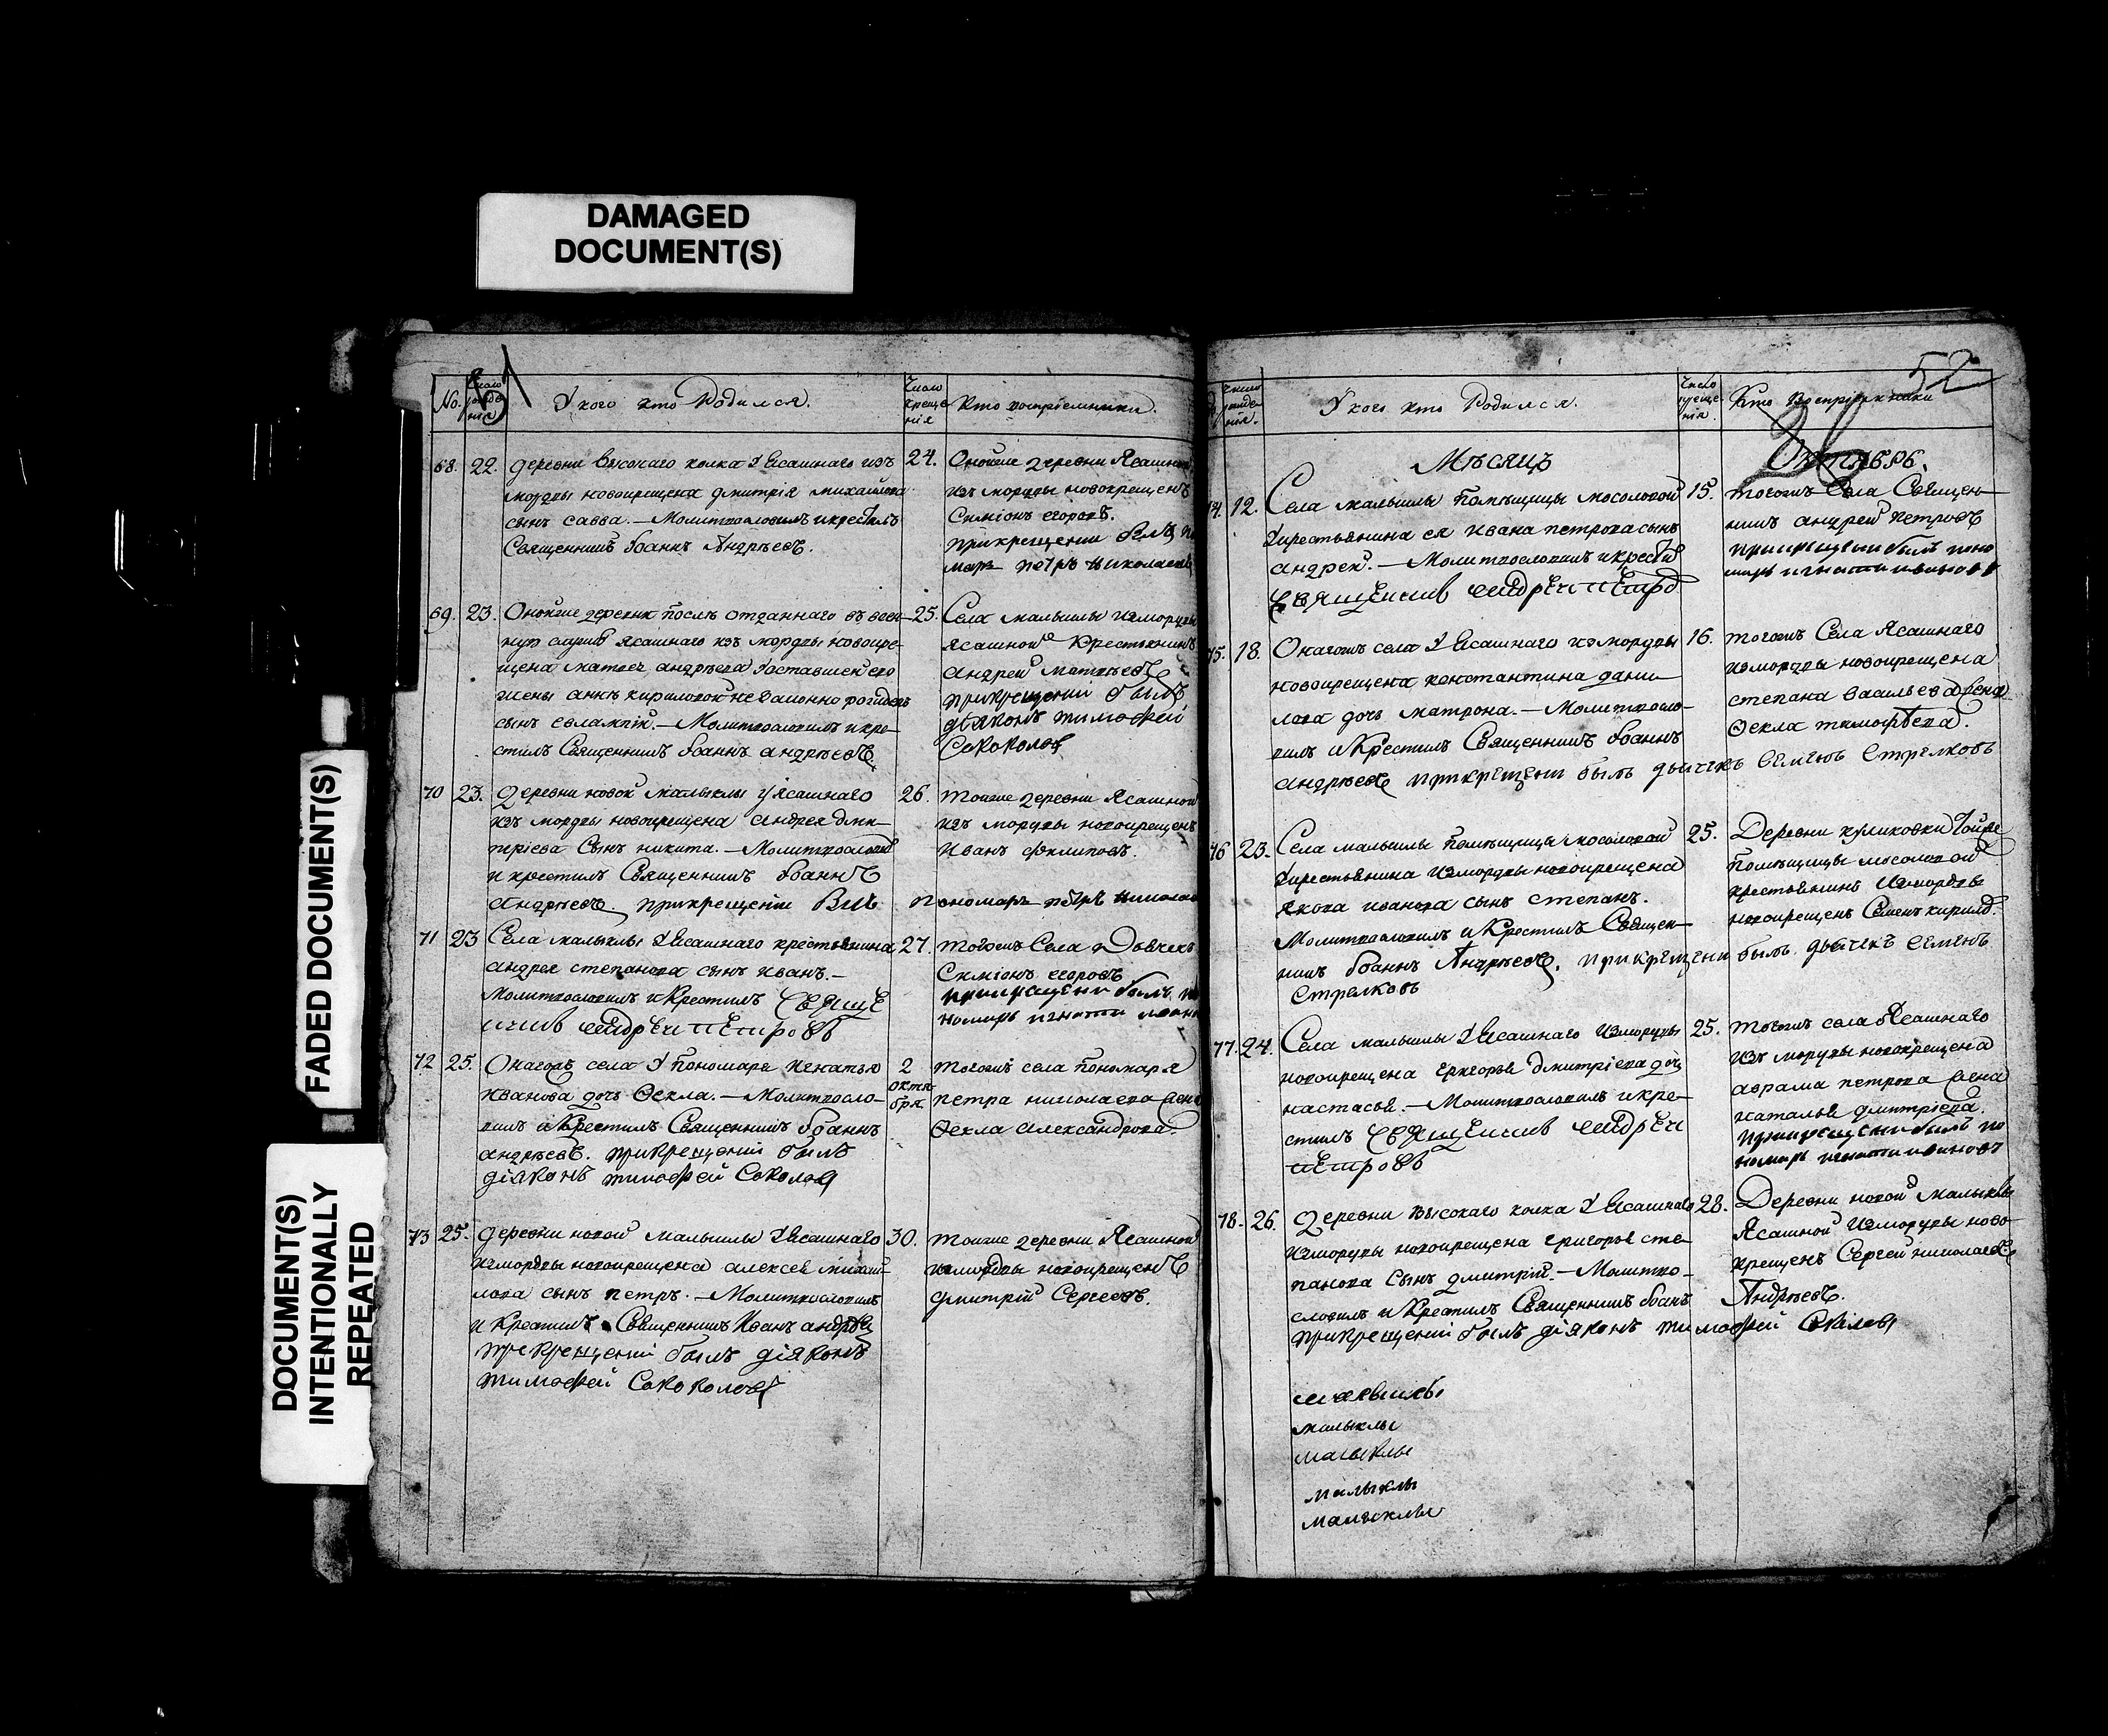 DAMAGED
DOCUMENT(S)
FADED DOCUMENT(S)
DOCUMENT(S)
INTENTIONALLY
REPEATED
No.
Число рожде нія
У кого кто Родился.
Число креще нія
Кто воспріемники.
68. 22.
деревни высокаго колка У Ясашнаго изъ
мордвы новокрещена дмитрія михайлова
сынъ савва. — Молитвословилъ и крестилъ
Священникъ Іоаннъ Андрѣевъ.
24.
Оной же деревни Ясашной
изъ мордвы новокрещенъ
Симіонъ егоровъ.
при крещении былъ по
марь петръ николаевъ
69. 23.
Оной же деревни послѣ отданнаго въ воен
ную службу ясашнаго изъ мордвы новокре-
щена матвея андрѣева У оставшей его
жены анны кириловой не законно рожденъ
сынъ евлампій. — Молитвословилъ и кре-
стилъ Священникъ Іоаннъ андрѣевъ
25.
Села малыклы из мордвы
ясашной крестьянинъ
андрей матвѣевъ
при крещении былъ
дьяконъ тимофей
Соколовъ
70 23.
деревни новой малыклы У ясашнаго
изъ мордвы новокрещена андрея дми-
тріева Сынъ никита. — Молитвословилъ
и крестилъ Священникъ Іоаннъ
Андрѣевъ при крещении былъ пономарь петръ николае
26.
тойже деревни Ясашной
изъ мордвы новокрещенъ
Иванъ филиповъ.
71 23
Села малыклы У Ясашнаго крестьянина
андрея степанова сынъ иванъ. —
Молитвословилъ и Крестилъ Свяще
нникъ андреи петровъ
27.
тогожъ Села дьячекъ
Симіонъ егоровъ
при крещени былъ по
номарь игнати ивано
72 25.
Онагожъ села У пономаря игнатья
иванова дочь Ѳекла. — Молитвосло-
вилъ и Крестилъ Священникъ Іоаннъ
андрѣевъ. при крещении былъ
діяконъ тимофей Соколовъ
2 октя бря
тогожъ села пономаря
петра николаева жена
Ѳекла александрова.
73 25.
деревни новой малыклы У Ясашнаго
из мордвы новокрещена алексея михаи-
лова сынъ петръ. — Молитвословилъ
и Крестилъ Священникъ Иванъ андрѣевъ
при крещении былъ діяконъ
тимофей Соколовъ
30.
тойже деревни Ясашной
из мордвы новокрещенъ
дмитрій Сергеевъ.
52
У кого кто Родился.
Число креще нія.
Кто Воспріемники
Мѣсяцъ Октябрь.
12.
Села малыклы Помѣщицы мосоловой
У крестьянина ея ивана петрова сынъ
андрей. — Молитвословилъ и крестилъ
Священникъ андреи петровъ
15.
тогожъ Села Священ-
никъ андрей петровъ
при крещени былъ поно
марь игнати ивановъ
75. 18.
Онагожъ села У Ясашнаго из мордвы
новокрещена константина дани-
лова дочь матрона. — Молитвосло-
вилъ и Крестилъ Священникъ Іоаннъ
андрѣевъ при крещени былъ дьячекъ Семенъ Стрелковъ
16.
тогожъ Села Ясашнаго
из мордвы новокрещена
степана васильева жена
Ѳекла тимофѣева.
76 23.
Села малыклы Помѣщицы мосоловой
У крестьянина из мордвы новокрещена
якова иванова сынъ степанъ.
Молитвословилъ и Крестилъ Священ-
никъ Іоаннъ Андрѣевъ. при крещени былъ дьячекъ Семенъ
Стрелковъ
25.
Деревни куликовки
Помѣщицы мосоловой
крестьянинъ из мордвы
новокрещенъ Семенъ
77. 24.
Села малыклы У Ясашнаго из мордвы
новокрещена григорья дмитріева дочь
настасья. — Молитвословилъ и кре-
стилъ Священникъ андреи
петровъ
25.
тогожъ села Ясашнаго
изъ мордвы новокрещена
аврама петрова жена
наталья дмитріева.
при крещени былъ по
номарь игнати ивановъ
78. 26.
деревни высокаго колка У Ясашнаго
из мордвы новокрещена григорья сте-
панова Сынъ дмитрій. — Молитво-
словилъ и Крестилъ Священникъ Іоанъ Андрѣевъ.
при крещении былъ діяконъ тимофей Соколовъ
28.
Деревни новой малыклы
Ясашной из мордвы ново
крещенъ Сергей николаевъ
малыклы
малыклы
малыклы
малыклы
малыклы